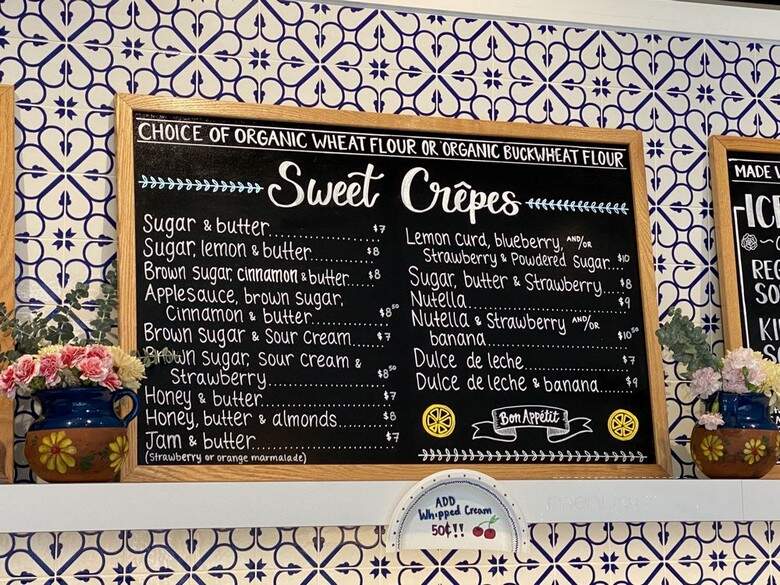 CHOICE OF ORGANIC WHEAT FLOUR OR ORGANIC BUCKWHEAT FLOUR
Sweet Crêpes
Sugar & butter $7
Sugar, lemon & butter $8
Brown sugar, cinnamon & butter $8
Applesauce, brown sugar,
Cinnamon & butter $8⁵⁰
Brown sugar & sour cream $7
Brown sugar, sour cream &
Strawberry $8⁵⁰
Honey & butter $7
Honey, butter & almonds $8
Jam & butter $7
(Strawberry or orange marmalade)
Lemon curd, blueberry, AND/OR
Strawberry & Powdered sugar $10
Sugar, butter & Strawberry $8
Nutella $9
Nutella & Strawberry AND/OR
banana $10⁵⁰
Dulce de leche $7
Dulce de leche & banana $9
Bon Appétit
ADD
Whipped Cream
50¢!!
MADE